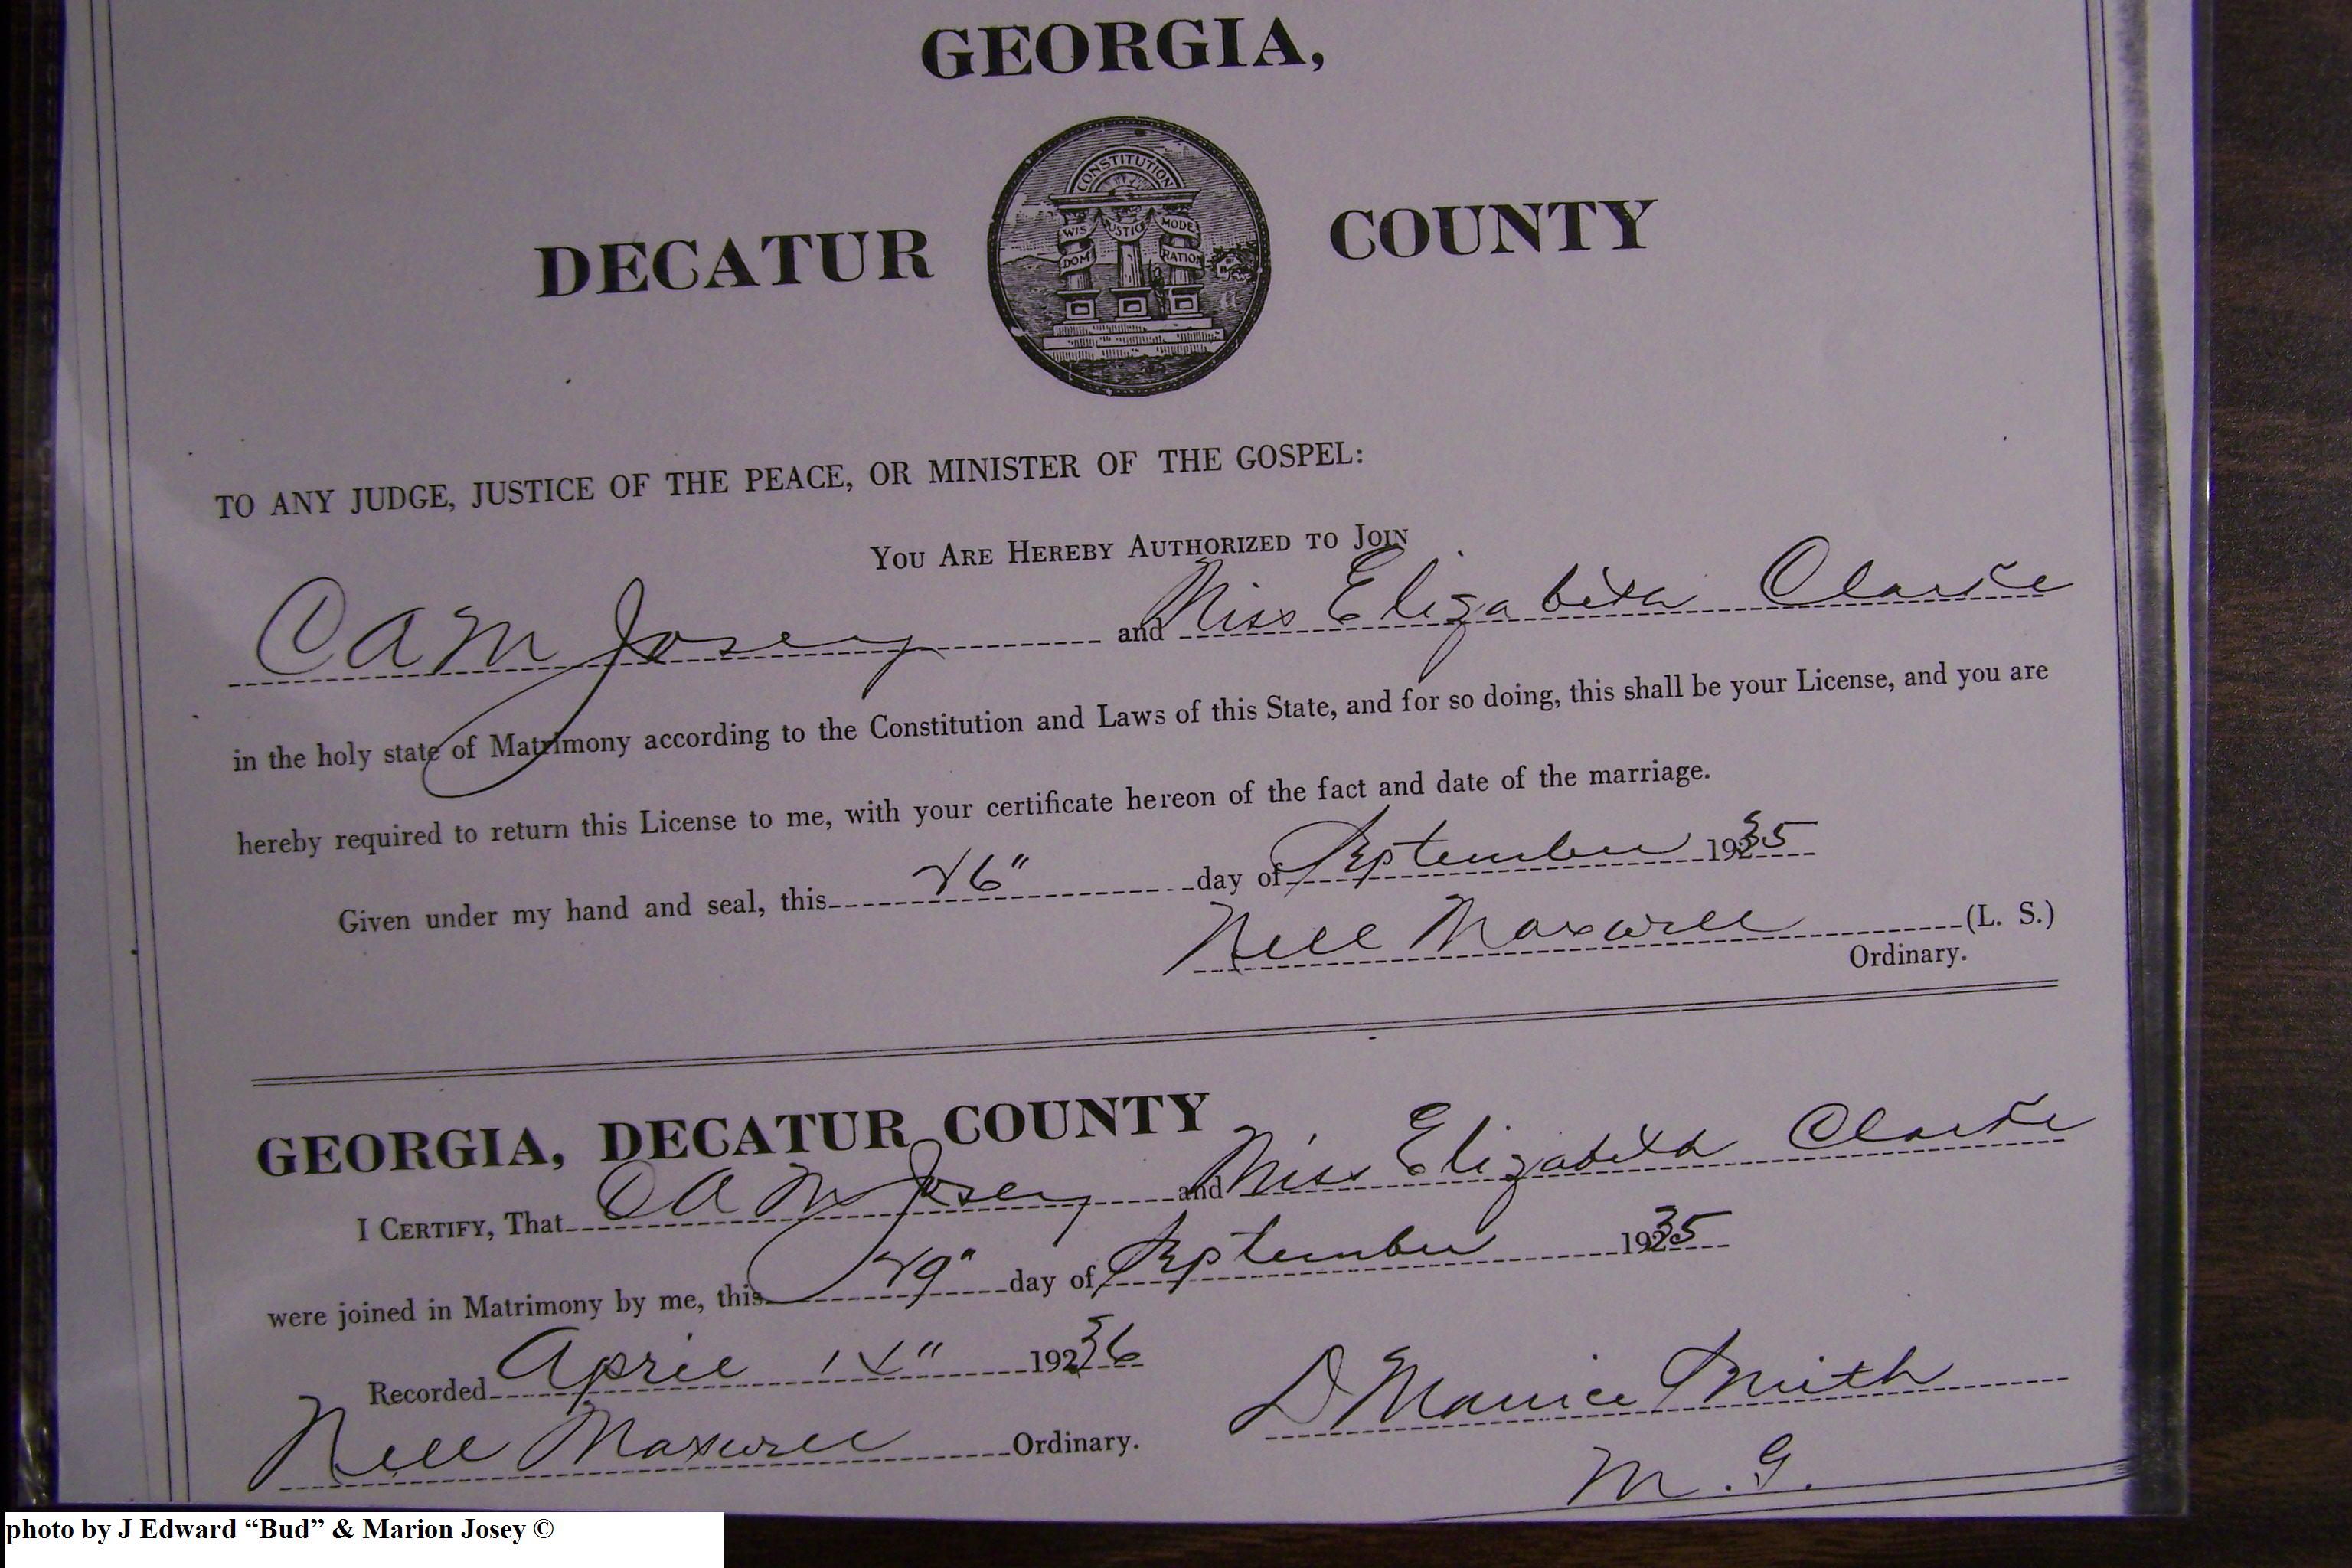 GEORGIA,
DECATUR COUNTY
CONSTITUTION
WIS DOM JUSTICE MODE RATION
TO ANY JUDGE, JUSTICE OF THE PEACE, OR MINISTER OF THE GOSPEL:
YOU ARE HEREBY AUTHORIZED TO JOIN
C A M Josey and Miss Elizabeth Clarke
in the holy state of Matrimony according to the Constitution and Laws of this State, and for so doing, this shall be your License, and you are
hereby required to return this License to me, with your certificate hereon of the fact and date of the marriage.
Given under my hand and seal, this 26" day of September 1935
Nell Maxwell (L. S.)
Ordinary.
GEORGIA, DECATUR COUNTY
I CERTIFY, That C A M Josey and Miss Elizabeth Clarke
were joined in Matrimony by me, this 29" day of September 1935
Recorded April 1936
D Maurice Smith
Nell Maxwell Ordinary.
M. G.
photo by J Edward “Bud” & Marion Josey ©